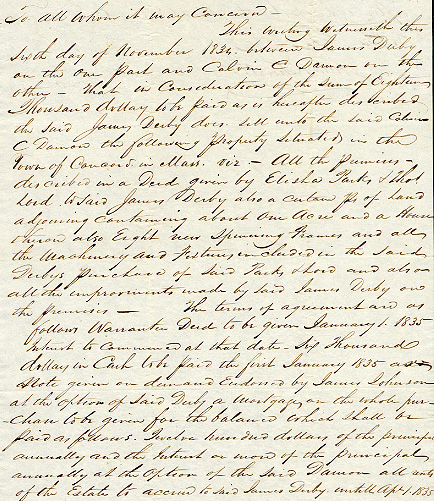 To all whom it may Concern -
This writing Witnesseth this
sixth day of November 1834. between James Derby
on the one Part and Calvin C Damon on the
other - that in Consideration of the Sum of Eighteen
Thousand dollars to be paid as is hereafter described
the said James Derby does sell unto the said Calvin
C Damon the following property situated in the
Town of Concord in Mass. viz - All the premises
described in a Deed given by Elisha Parks &
Lord to said James Derby also a certain ps of Land
adjoining Containing about One Acre and a House
thereon also Eight new Spinning Frames and all
the Machinery and Fixtures included in the said
Derbys purchase of said Parks & Lord and also
all the improvements made by said James Derby on
the premises - The terms of agreement are as
follows Warrantee Deed to be given January 1. 1835
Interest to Commence at that date - Six Thousand
dollars in Cash to be paid the first January 1835 a
Note given on demand Endorsed by James Johnson
at the option of said Derby a Mortgage on the whole pur-
chase to be given for the balance which shall be
paid as follows. Twelve hundred dollars of the principal
annually and the Interest or more of the principal
annually at the Option of the said Damon all
of the Estate to accrue to said James Derby untill Apl 1. 1835